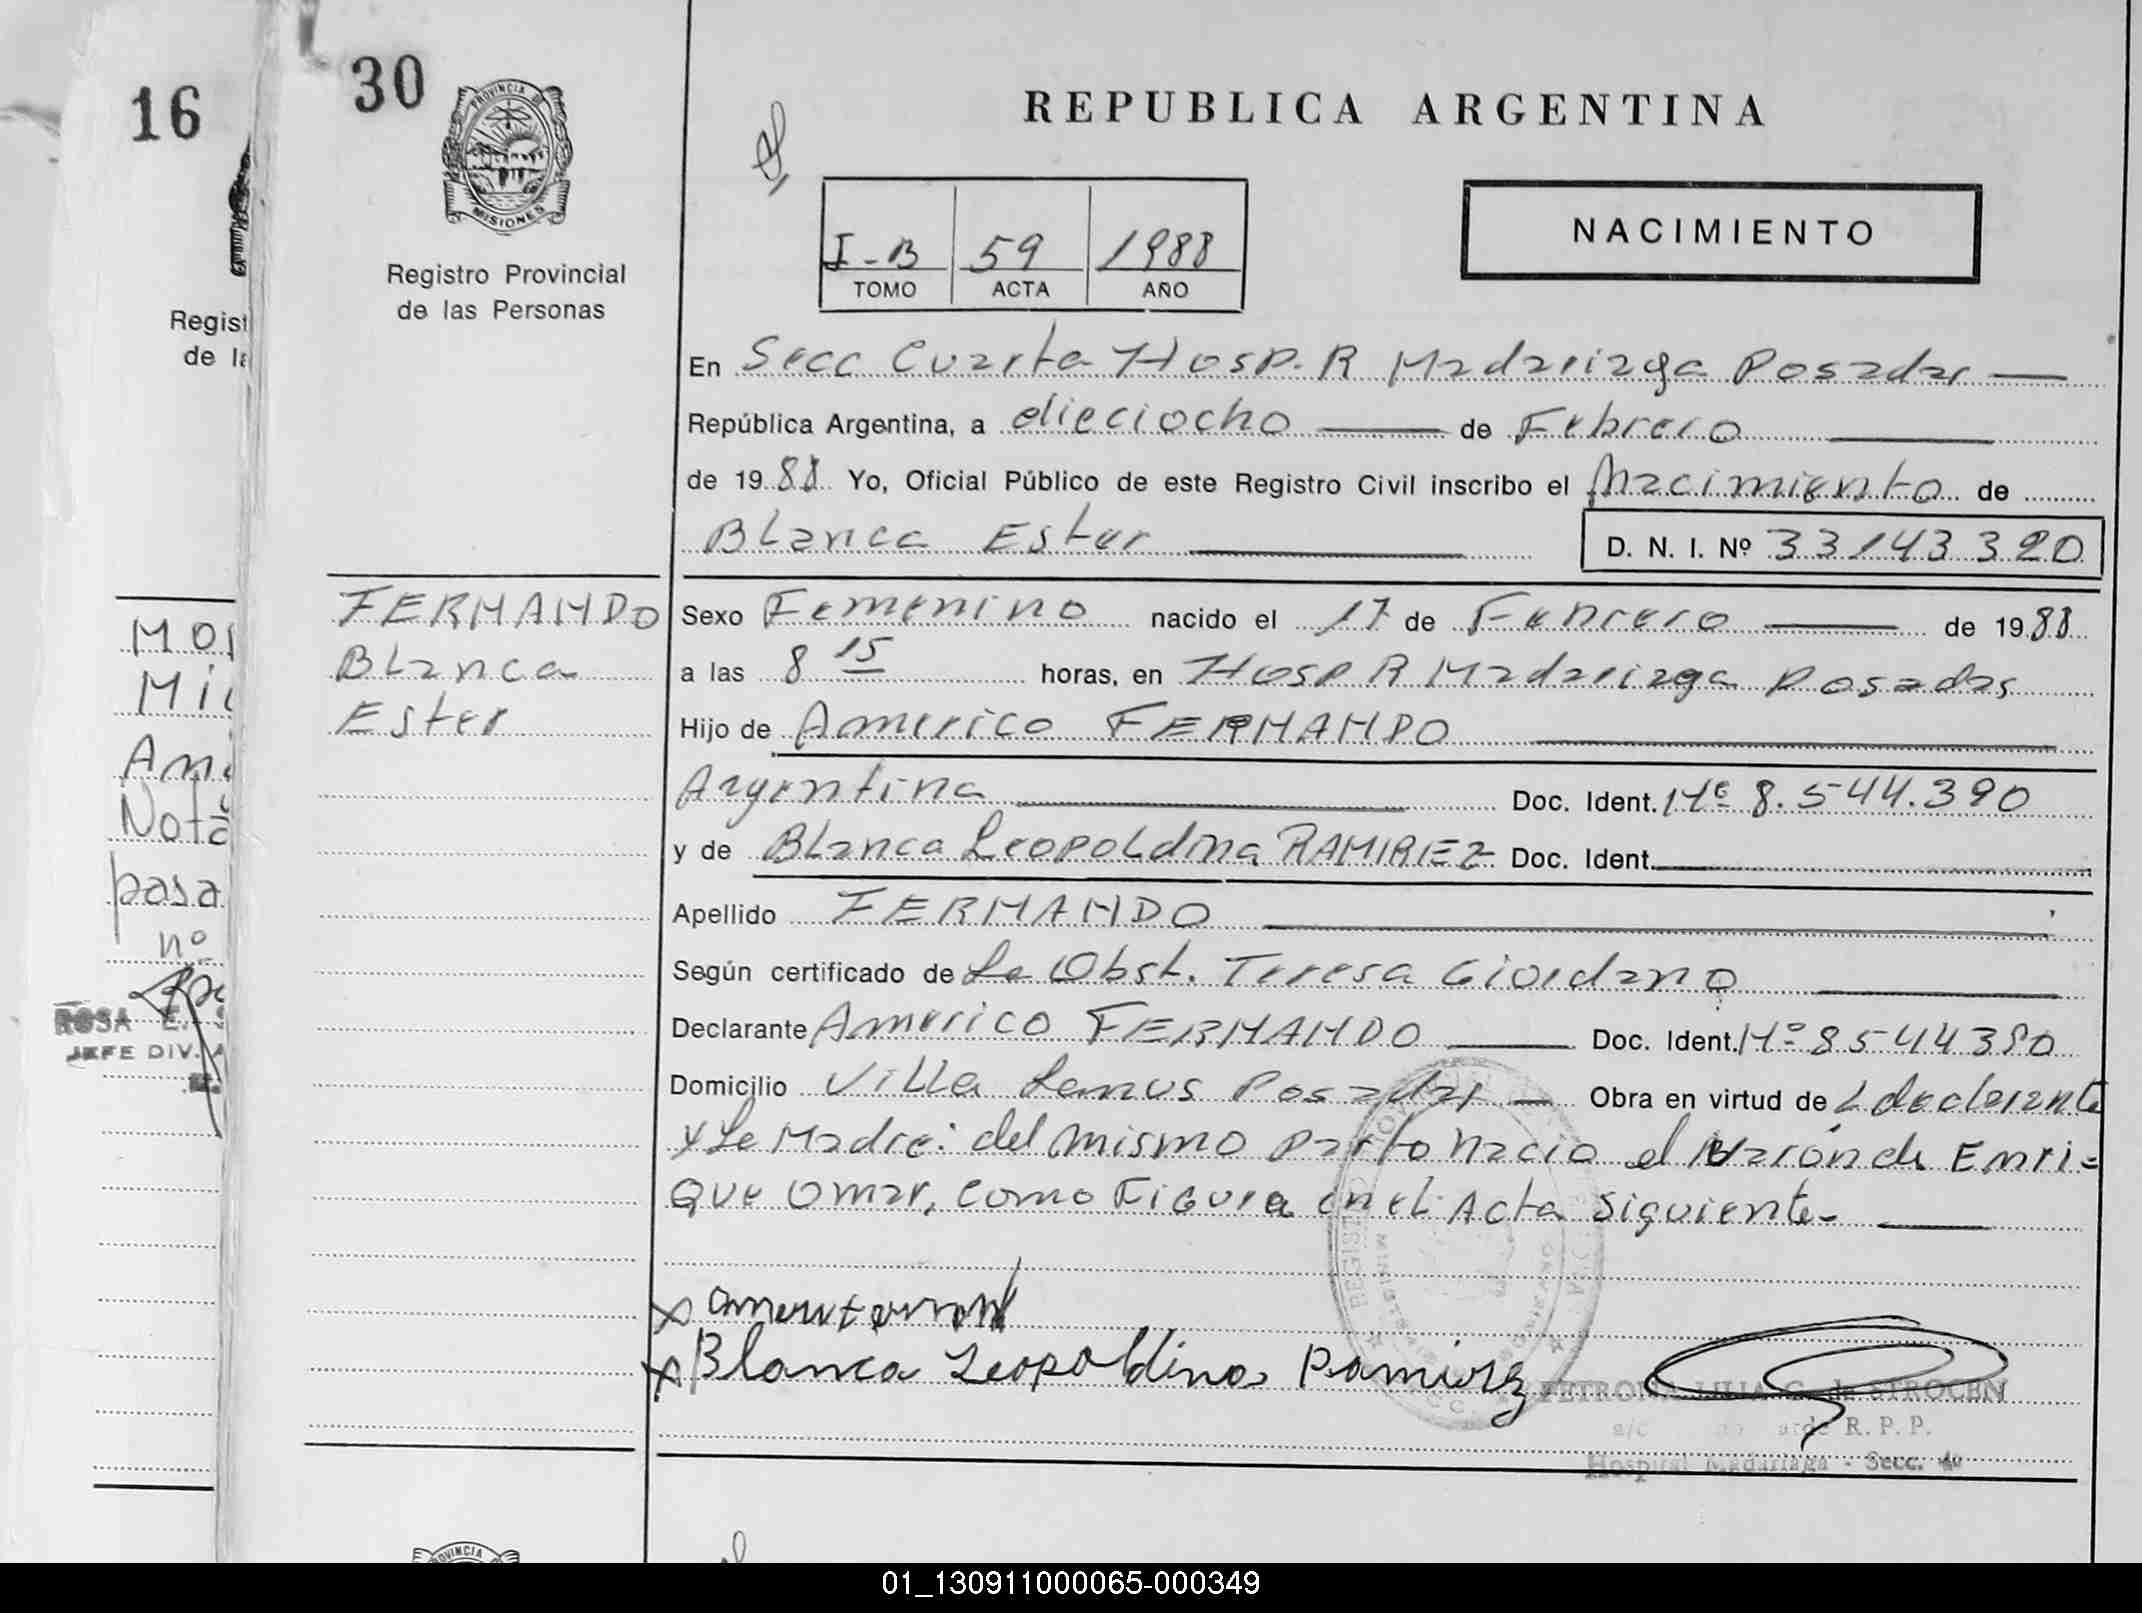 16
Regist
de la
MOS
Mic
Ani
Nota
pasa
nº
ROSA E. S
JEFE DIV. A
30
PROVINCIA DE
MISIONES
Registro Provincial
de las Personas
FERNANDO
Blanca
Ester
REPUBLICA ARGENTINA
NACIMIENTO
I-B 59 1988
TOMO ACTA AÑO
En Secc Cuarta Hosp. R Madariaga Posadas
República Argentina, a dieciocho de Febrero
de 1988 Yo, Oficial Público de este Registro Civil inscribo el Nacimiento de
Blanca Ester D. N. I. Nº 33143320
Sexo Femenino nacido el 17 de Febrero de 1988
a las 8 15 horas, en Hosp R Madariaga Posadas
Hijo de Americo FERNANDO
Argentina Doc. Ident. Nº 8.544.390
y de Blanca Leopoldina RAMIREZ Doc. Ident.
Apellido FERNANDO
Según certificado de La Obst. Teresa Giordano
Declarante Americo FERNANDO Doc. Ident. Nº 8544390
Domicilio Villa Lanus Posadas Obra en virtud de L declarante
y La Madre: del mismo parto nacio el Varón de Enri=
que Omar, como Figura en el Acta siguiente-
x
x Blanca Leopoldina Ramirez
PETRONA LILIA G. de STROCEN
R. P. P.
Hospital Madariaga - Secc. 4º
PROVINCIA
01_130911000065-000349